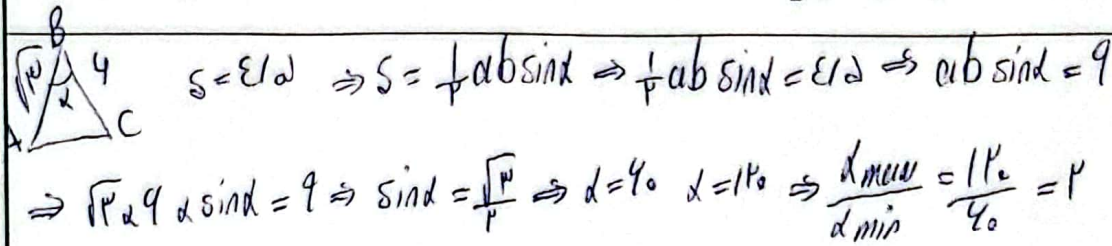 B
√۳ ۶ α A C S = ۴/۵ ⇒ S = ۱/۲ ab sinα ⇒ ۱/۲ ab sinα = ۴/۵ ⇒ ab sinα = ۹
⇒ √۳ × ۶ × sinα = ۹ ⇒ sinα = √۳/۲ ⇒ α = ۶۰ α = ۱۲۰ ⇒ α max/α min = ۱۲۰/۶۰ = ۲